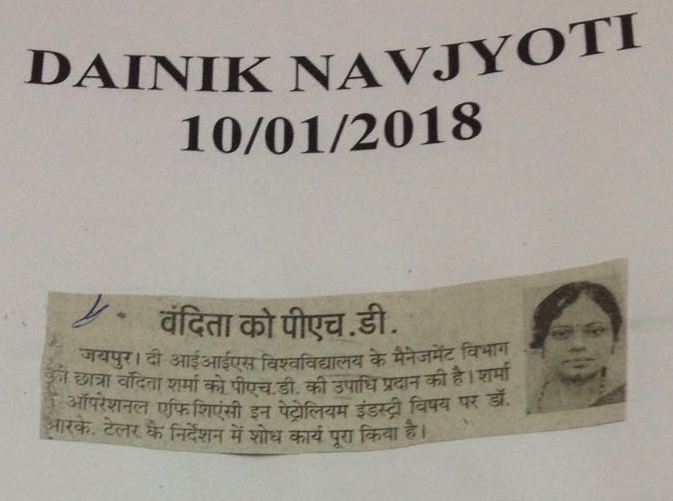 DAINIK NAVJYOTI
10/01/2018
वंदिता को पीएच.डी.
जयपुर। दी आईआईएस विश्वविद्यालय के मैनेजमेंट विभाग
की छात्रा वंदिता शर्मा को पीएच.डी. की उपाधि प्रदान की है। शर्मा
ने ऑपरेशनल एफिशिएंसी इन पेट्रोलियम इंडस्ट्री विषय पर डॉ.
आरके. टेलर के निर्देशन में शोध कार्य पूरा किया है।